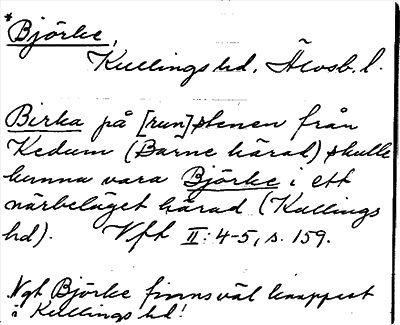 *Björke,
Kullings hd, Älvsb. l.
Birka på [run]stenen från
Kedum (Barne härad) skulle
kunna vara Björke i ett
närbeläget härad (Kullings
hd). Vft II: 4-5, s. 159.
Ngt Björke finns väl knappast
i Kullings hd!